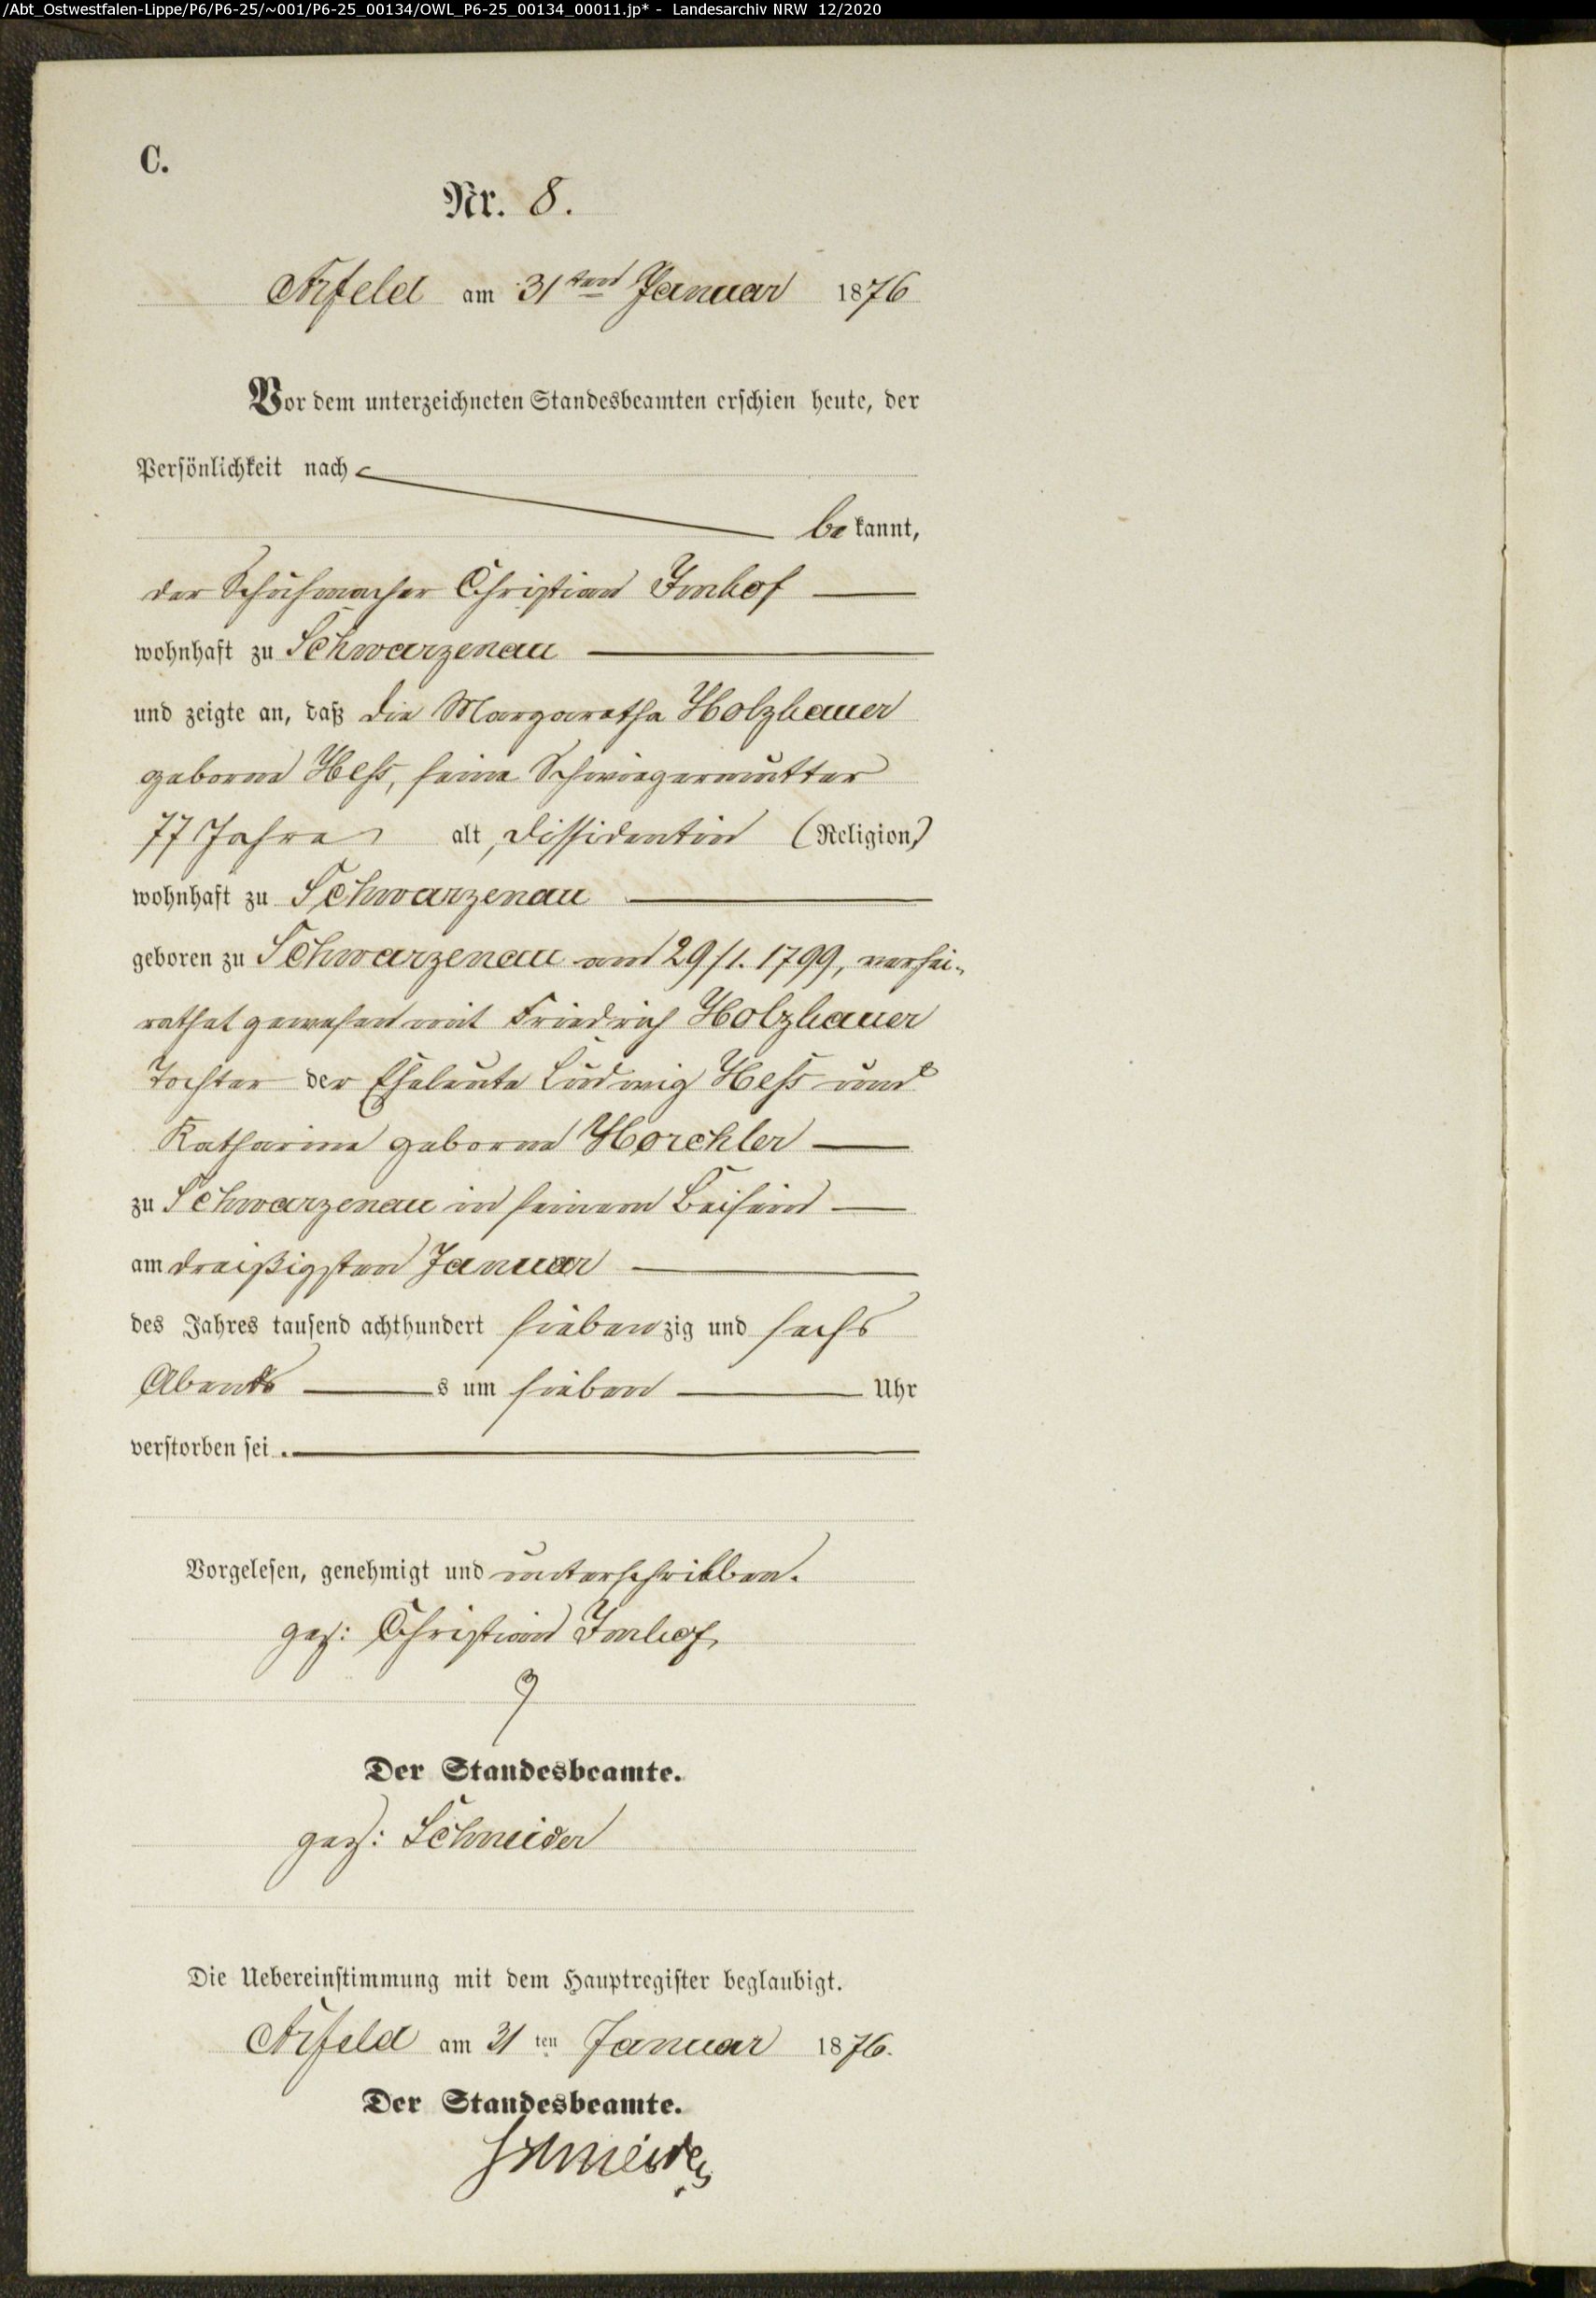 /Abt_Ostwestfalen-Lippe/P6/P6-25/~001/P6-25_00134/OWL_P6-25_00134_00011.jp* - Landesarchiv NRW 12/2020
C.
Nr. 8.
Arfeld am 31ten Januar 1876
Vor dem unterzeichneten Standesbeamten erschien heute, der
Persönlichkeit nach
bekannt,
der Schuhmacher Christian Imhof
wohnhaft zu Schwarzenau
und zeigte an, daß die Margaretha Holzhauer
geborne Heß, seine Schwiegermutter
77 Jahre alt, Dissidentin (Religion)
wohnhaft zu Schwarzenau
geboren zu Schwarzenau am 29/1. 1799, verhei-
rathet gewesen mit Friedrich Holzhauer
Tochter der Eheleute Ludwig Heß und
Katharine geborne Horchler
zu Schwarzenau in seinem Beisein
am dreißigsten Januar
des Jahres tausend achthundert siebenzig und sechs
Abends s um sieben Uhr
verstorben sei.
Vorgelesen, genehmigt und unterschribben.
gez: Christian Imhof
Der Standesbeamte.
gez: Schneider
Die Uebereinstimmung mit dem Hauptregister beglaubigt.
Arfeld am 31 ten Januar 1876.
Der Standesbeamte.
Schneider